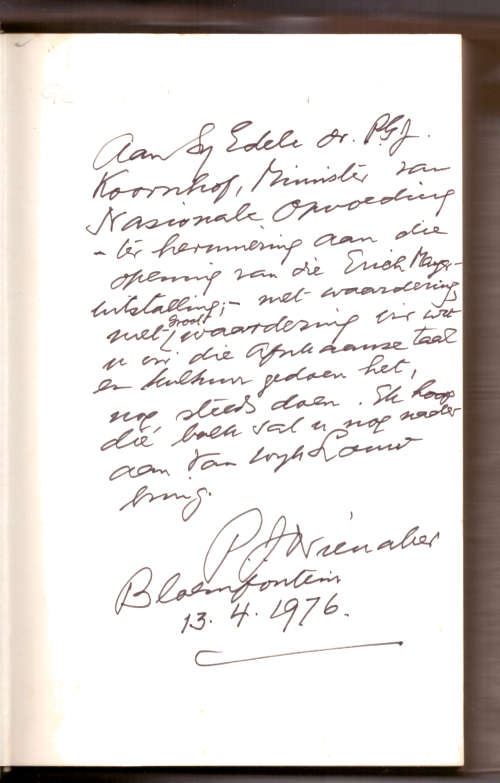 Aan Sy Edele dr. P.G.J.
Koornhof, Minister van
Nasionale Opvoeding
- ter herinnering aan die
opening van die Erich Mayer-
uitstalling; - met waardering,
met groot waardering vir wat
u vir die Afrikaanse taal
en kultuur gedoen het,
nog steeds doen. Ek hoop
dié boek sal u nog nader
aan Van Wyk Louw
bring.
P. J. Nienaber
Bloemfontein
13. 4. 1976.